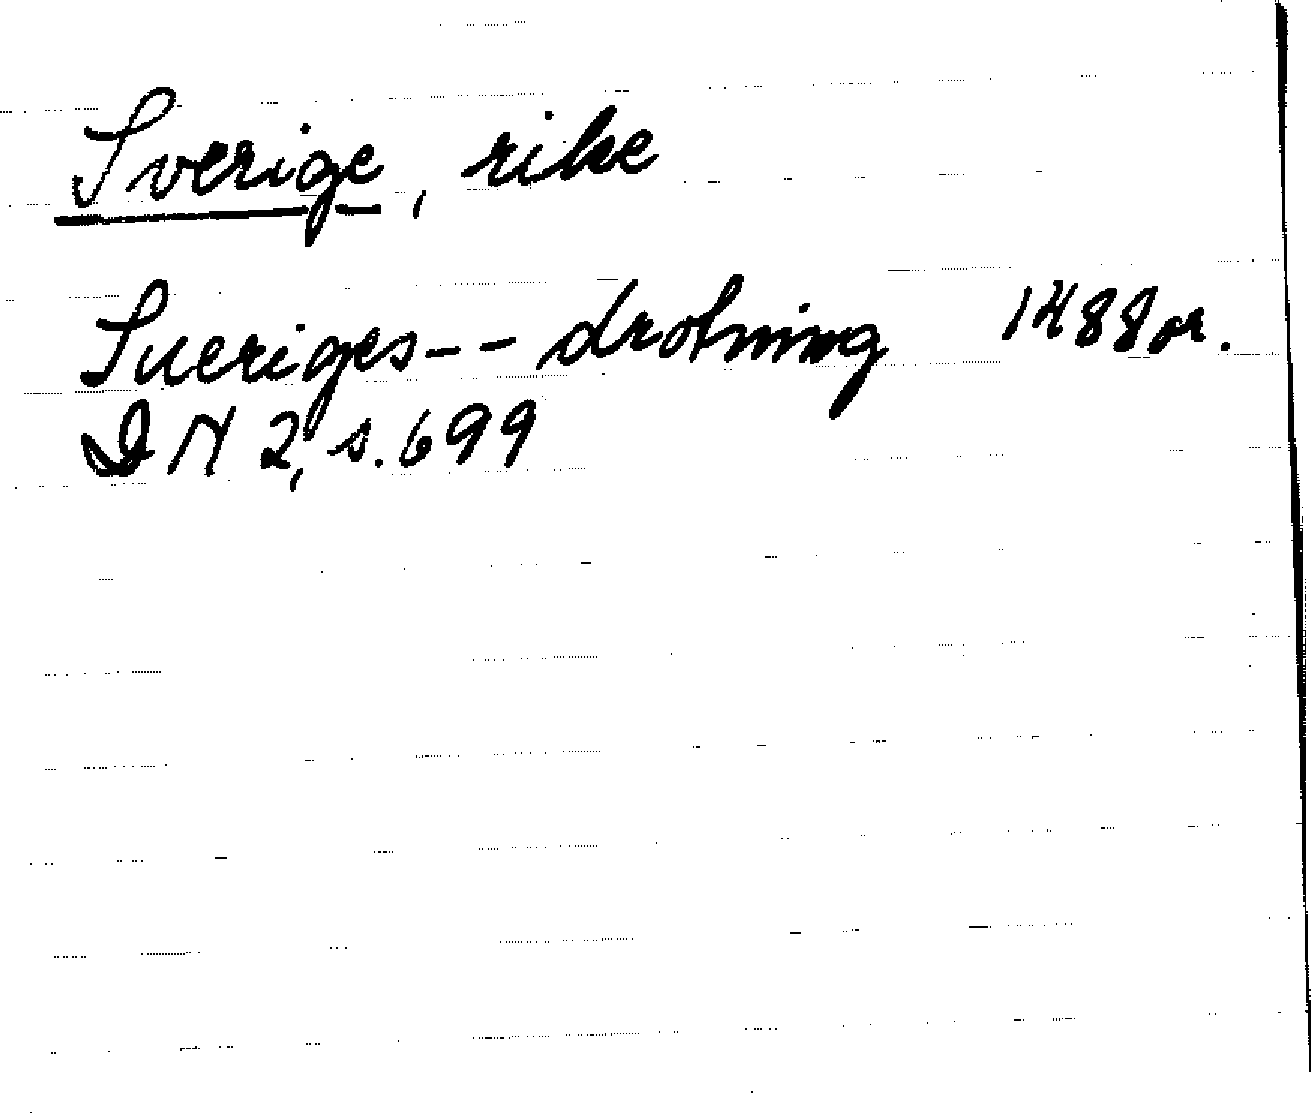 Sverige, rike
Sueriges-- drotning 1488 or.
DN 2, s. 699